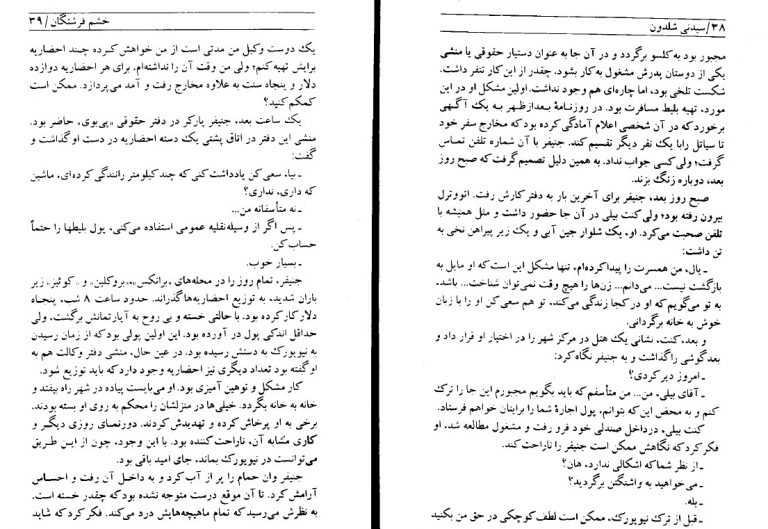 ۳۸/سیدنی شلدون
مجبور بود به کلسو برگردد و در آن جا به عنوان دستیار حقوقی یا منشی
یکی از دوستان پدرش مشغول به کار بشود. چقدر از این کار تنفر داشت.
شکست تلخی بود، اما چاره‌ای هم وجود نداشت. اولین مشکل او در این
مورد، تهیه بلیط مسافرت بود. در روزنامهٔ بعدازظهر به یک آگهی
برخورد که در آن شخصی اعلام آمادگی کرده بود که مخارج سفر خود
تا سیاتل را با یک نفر دیگر تقسیم کند. جنیفر با آن شماره تلفن تماس
گرفت؛ ولی کسی جواب نداد. به همین دلیل تصمیم گرفت که صبح روز
بعد، دوباره زنگ بزند.
صبح روز بعد، جنیفر برای آخرین بار به دفتر کارش رفت. اتووترل
بیرون رفته بود؛ ولی کنت بیلی در آن جا حضور داشت و مثل همیشه با
تلفن صحبت می‌کرد. او، یک شلوار جین آبی و یک زیر پیراهن نخی به
تن داشت:
ـ یال، من همسرت را پیدا کرده‌ام، تنها مشکل این است که او مایل به
بازگشت نیست... می‌دانم... زن‌ها را هیچ وقت نمی‌توان شناخت... باشد،
به تو می‌گویم که او در کجا زندگی می‌کند، تو هم سعی کن او را با زبان
خوش به خانه برگردانی.
و بعد، کنت، نشانی یک هتل در مرکز شهر را در اختیار او قرار داد و
بعد گوشی را گذاشت و به جنیفر نگاه کرد:
ـ امروز دیر کردی؟
ـ آقای بیلی، من... من متأسفم که باید بگویم مجبورم این جا را ترک
کنم و به محض این که بتوانم، پول اجارهٔ شما را برایتان خواهم فرستاد.
کنت بیلی، در داخل صندلی خود فرو رفت و مشغول مطالعه شد. او
فکر کرد که نگاهش ممکن است جنیفر را ناراحت کند.
ـ از نظر شما که اشکالی ندارد، هان؟
ـ می‌خواهید به واشنگتن برگردید؟
ـ بله.
ـ قبل از ترک نیویورک، ممکن است لطف کوچکی در حق من بکنید
خشم فرشتگان/۳۹
یک دوست وکیل من مدتی است از من خواهش کرده چند احضاریه
برایش تهیه کنم؛ ولی من وقت آن را نداشته‌ام. برای هر احضاریه دوازده
دلار و پنجاه سنت به علاوه مخارج رفت و آمد می‌پردازد. ممکن است
کمکم کنید؟
یک ساعت بعد، جنیفر پارکر در دفتر حقوقی «پی‌بوی» حاضر بود.
منشی این دفتر در اتاق پشتی یک دسته احضاریه در دست او گذاشت و
گفت:
ـ بیا. سعی کن یادداشت کنی که چند کیلومتر رانندگی کرده‌ای، ماشین
که داری، نداری؟
ـ نه متأسفانه من...
ـ پس اگر از وسیله نقلیه عمومی استفاده می‌کنی، پول بلیطها را حتماً
حساب کن.
ـ بسیار خوب.
جنیفر، تمام روز را در محله‌های «برانکس»، «بروکلین» و «کوئینز» زیر
باران شدید، به توزیع احضاریه‌ها گذراند. حدود ساعت ۸ شب، پنجاه
دلار کار کرده بود. با حالتی خسته و بی روح به آپارتمانش برگشت، ولی
حداقل اندکی پول در آورده بود. این اولین پولی بود که از زمان رسیدن
به نیویورک به دستش رسیده بود. در عین حال، منشی دفتر وکالت هم به
او گفته بود تعداد دیگری نیز احضاریه وجود دارد که باید توزیع شود.
کار مشکل و توهین آمیزی بود. او می‌بایست پیاده در شهر راه بیفتد و
خانه به خانه بگردد. خیلی‌ها در منزلشان را محکم به روی او بسته بودند.
برخی به او پرخاش کرده و تهدیدش کردند. دورنمای روزی دیگر و
کاری مشابه آن، ناراحت کننده بود. با این وجود، چون از این طریق
می‌توانست در نیویورک بماند، جای امید باقی بود.
جنیفر وان حمام را پر از آب کرد و به داخل آن رفت و احساس
آرامش کرد. تا آن موقع درست متوجه نشده بود که چقدر خسته است.
به نظرش می‌رسید که تمام ماهیچه‌هایش درد می‌کند. فکر کرد که شاید